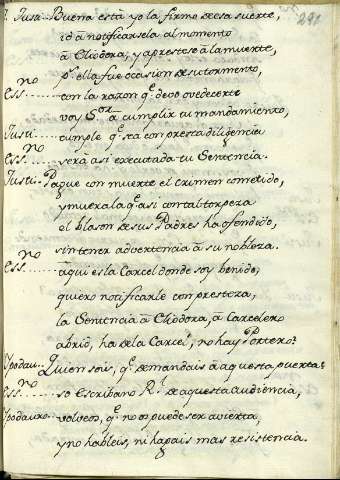 291
Justi. Buena está yo la firmo de esa suerte,
id â notificarsela al momento
â Cliodora, y aprestese â la muerte,
p.r ella fue ocasion de su tormento,
ess.no con la razon q.e devo ovedecerte
voy S.or â cumplir tu mandamiento,
Justi cumple q.e sea con presta diligencia
ess.no será asi executada tu Sentencia.
Justi Pague con muerte el crimen cometido,
y muera la q.e asi con tal torpeza
el blason de sus Padres ha ofendido,
sin tener advertencia â su nobleza.
ess.no aqui es la Carcel donde soy benido,
quiero notificarle con presteza,
la Sentencia â Cliodora, â Carcelero
abrid, ha de la Carcel, no hay Portero?
Ypodau Quien sois, q.e demandais â aquesta puerta?
ess.no so Escribano R.l de aquesta audiencia,
Ypodauro volveos, q.e no os puede ser avierta,
y no hableis, ni hagais mas resistencia.